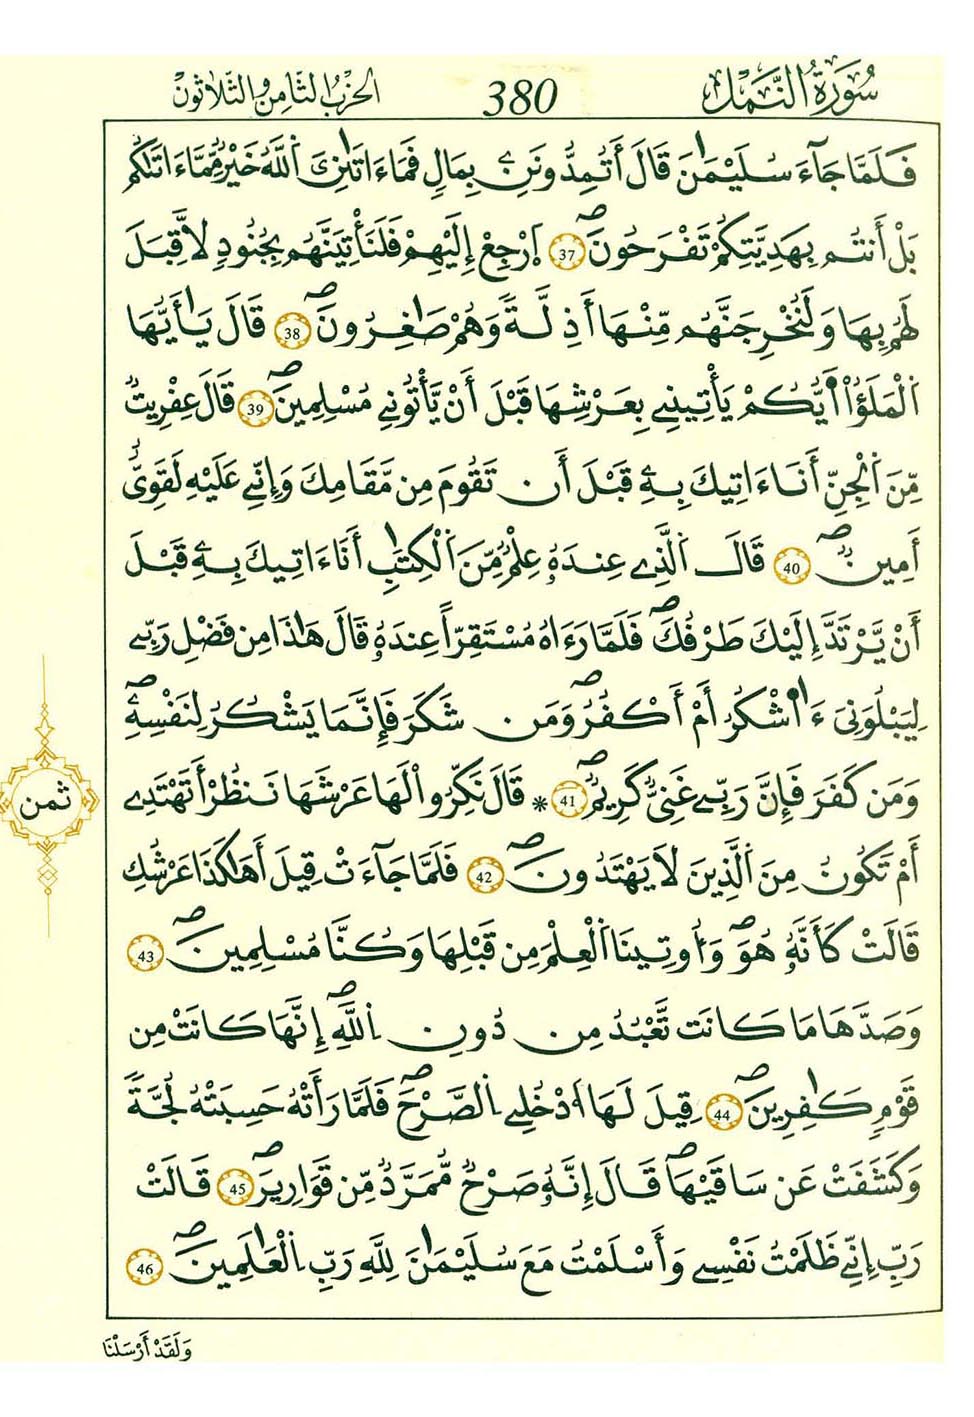 سُورَةُ النَّمْلِ 380 الحِزْبُ الثَّامِنُ وَالثَّلَاثُونَ
فَلَمَّا جَآءَ سُلَيْمَٰنَ قَالَ أَتُمِدُّونَنِۦ بِمَالٍ فَمَآ ءَاتَىٰنِۦَ اَ۬للَّهُ خَيْرٌ مِّمَّآ ءَاتَىٰكُم
بَلْ أَنتُم بِهَدِيَّتِكُمْ تَفْرَحُونَۖ 37 اَ۪رْجِعْ إِلَيْهِمْ فَلَنَأْتِيَنَّهُم بِجُنُودٍ لَّا قِبَلَ
لَهُم بِهَا وَلَنُخْرِجَنَّهُم مِّنْهَآ أَذِلَّةً وَهُمْ صَٰغِرُونَۖ 38 قَالَ يَٰٓأَيُّهَا
اَ۬لْمَلَؤُاْ أَيُّكُمْ يَأْتِينِے بِعَرْشِهَا قَبْلَ أَنْ يَّأْتُونِے مُسْلِمِينَۖ 39 قَالَ عِفْرِيتٌ
مِّنَ اَ۬لْجِنِّ أَنَآ ءَاتِيكَ بِهِۦ قَبْلَ أَن تَقُومَ مِن مَّقَامِكَ وَإِنِّے عَلَيْهِ لَقَوِيٌّ
أَمِينٌۖ 40 قَالَ اَ۬لَّذِے عِندَهُۥ عِلْمٌ مِّنَ اَ۬لْكِتَٰبِ أَنَآ ءَاتِيكَ بِهِۦ قَبْلَ
أَنْ يَّرْتَدَّ إِلَيْكَ طَرْفُكَۖ فَلَمَّا رَءَاهُ مُسْتَقِرّاً عِندَهُۥ قَالَ هَٰذَا مِن فَضْلِ رَبِّے
لِيَبْلُوَنِيَ ءَآشْكُرُ أَمْ أَكْفُرُۖ وَمَن شَكَرَ فَإِنَّمَا يَشْكُرُ لِنَفْسِهِۦۖ
وَمَن كَفَرَ فَإِنَّ رَبِّے غَنِيٌّ كَرِيمٌۖ 41 * قَالَ نَكِّرُواْ لَهَا عَرْشَهَا نَنظُرْ أَتَهْتَدِے
ثمن
أَمْ تَكُونُ مِنَ اَ۬لَّذِينَ لَا يَهْتَدُونَۖ 42 فَلَمَّا جَآءَتْ قِيلَ أَهَٰكَذَا عَرْشُكِ
قَالَتْ كَأَنَّهُۥ هُوَۖ وَأُوتِينَا اَ۬لْعِلْمَ مِن قَبْلِهَا وَكُنَّا مُسْلِمِينَۖ 43
وَصَدَّهَا مَا كَانَت تَّعْبُدُ مِن دُونِ اِ۬للَّهِۖ إِنَّهَا كَانَتْ مِن
قَوْمٍ كَٰفِرِينَۖ 44 قِيلَ لَهَا اَ۟دْخُلِے اِ۬لصَّرْحَۖ فَلَمَّا رَأَتْهُ حَسِبَتْهُ لُجَّةً
وَكَشَفَتْ عَن سَاقَيْهَاۖ قَالَ إِنَّهُۥ صَرْحٌ مُّمَرَّدٌ مِّن قَوَارِيرَۖ 45 قَالَتْ
رَبِّ إِنِّے ظَلَمْتُ نَفْسِے وَأَسْلَمْتُ مَعَ سُلَيْمَٰنَ لِلَّهِ رَبِّ اِ۬لْعَٰلَمِينَۖ 46
وَلَقَدْ أَرْسَلْنَا